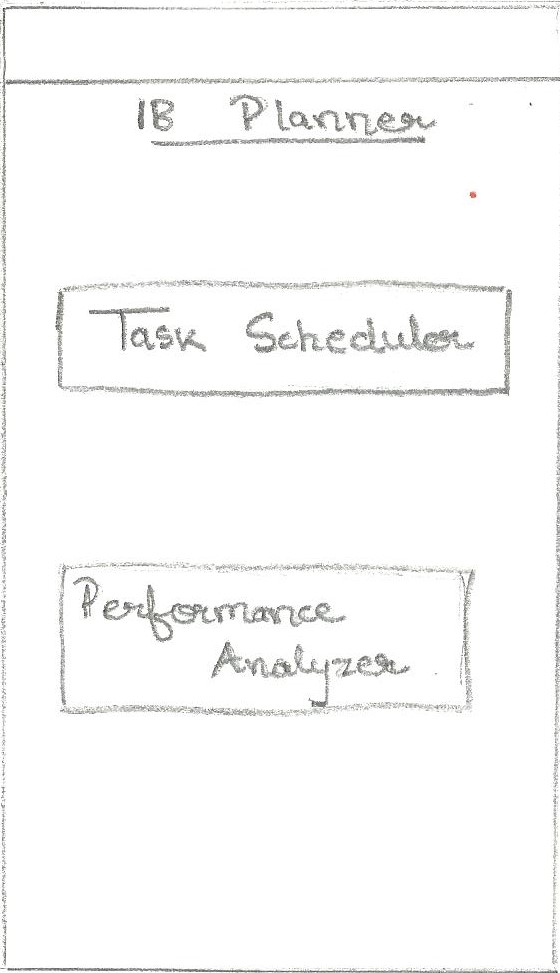 IB Planner
Task Scheduler
Performance
Analyzer